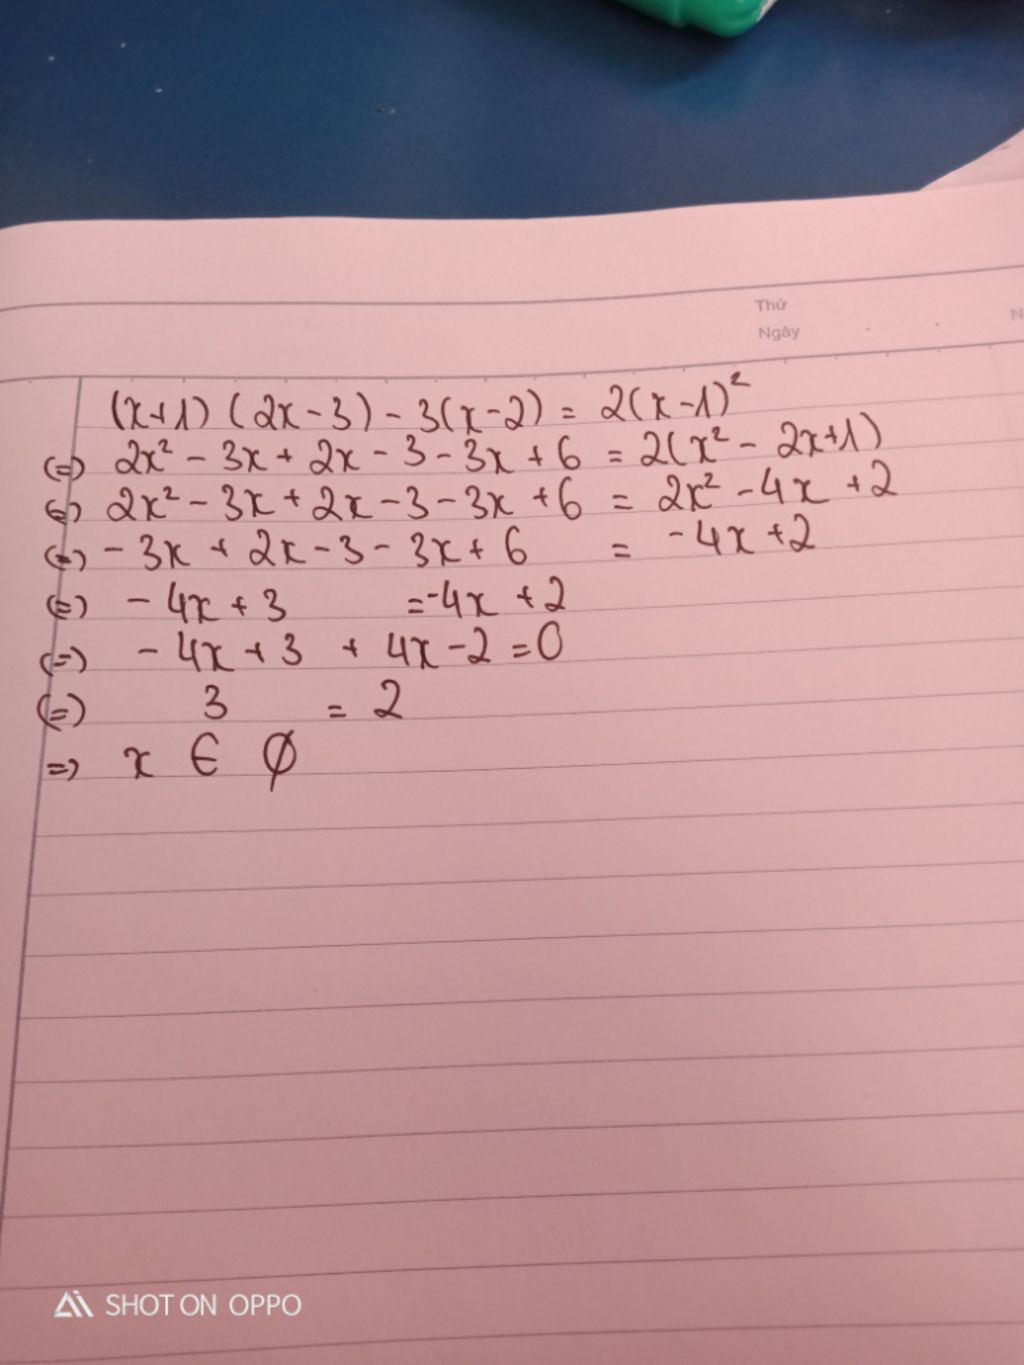 Thứ
Ngày
N
(x+1) (2x-3) - 3(x-2) = 2(x-1)²
(=) 2x² - 3x + 2x - 3 - 3x + 6 = 2(x² - 2x+1)
(=) 2x² - 3x + 2x - 3 - 3x + 6 = 2x² - 4x + 2
(=) - 3x + 2x - 3 - 3x + 6 = - 4x + 2
(=) - 4x + 3 = -4x + 2
(=) - 4x + 3 + 4x - 2 = 0
(=) 3 = 2
=) x ∈ ∅
SHOT ON OPPO